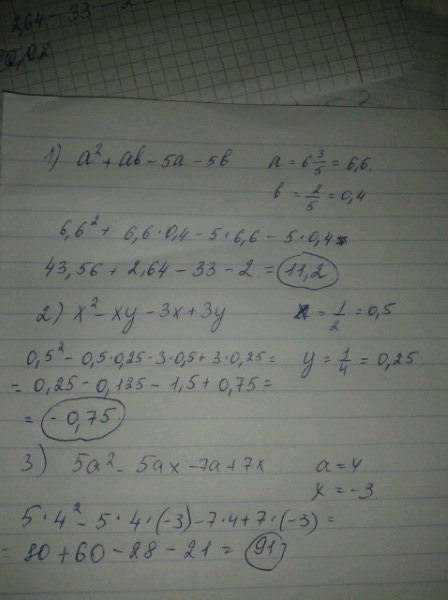 2,64 - 33 - 2
0,02
1) a² + ab - 5a - 5b a = 6 3/5 = 6,6.
b = 2/5 = 0,4
6,6² + 6,6·0,4 - 5·6,6 - 5·0,4
43,56 + 2,64 - 33 - 2 = 11,2
2) x² - xy - 3x + 3y x = 1/2 = 0,5
0,5² - 0,5·0,25 - 3·0,5 + 3·0,25 = y = 1/4 = 0,25
= 0,25 - 0,125 - 1,5 + 0,75 =
= -0,75.
3) 5a² - 5ax - 7a + 7x a = 4
x = -3
5·4² - 5·4·(-3) - 7·4 + 7·(-3) =
= 80 + 60 - 28 - 21 = 91